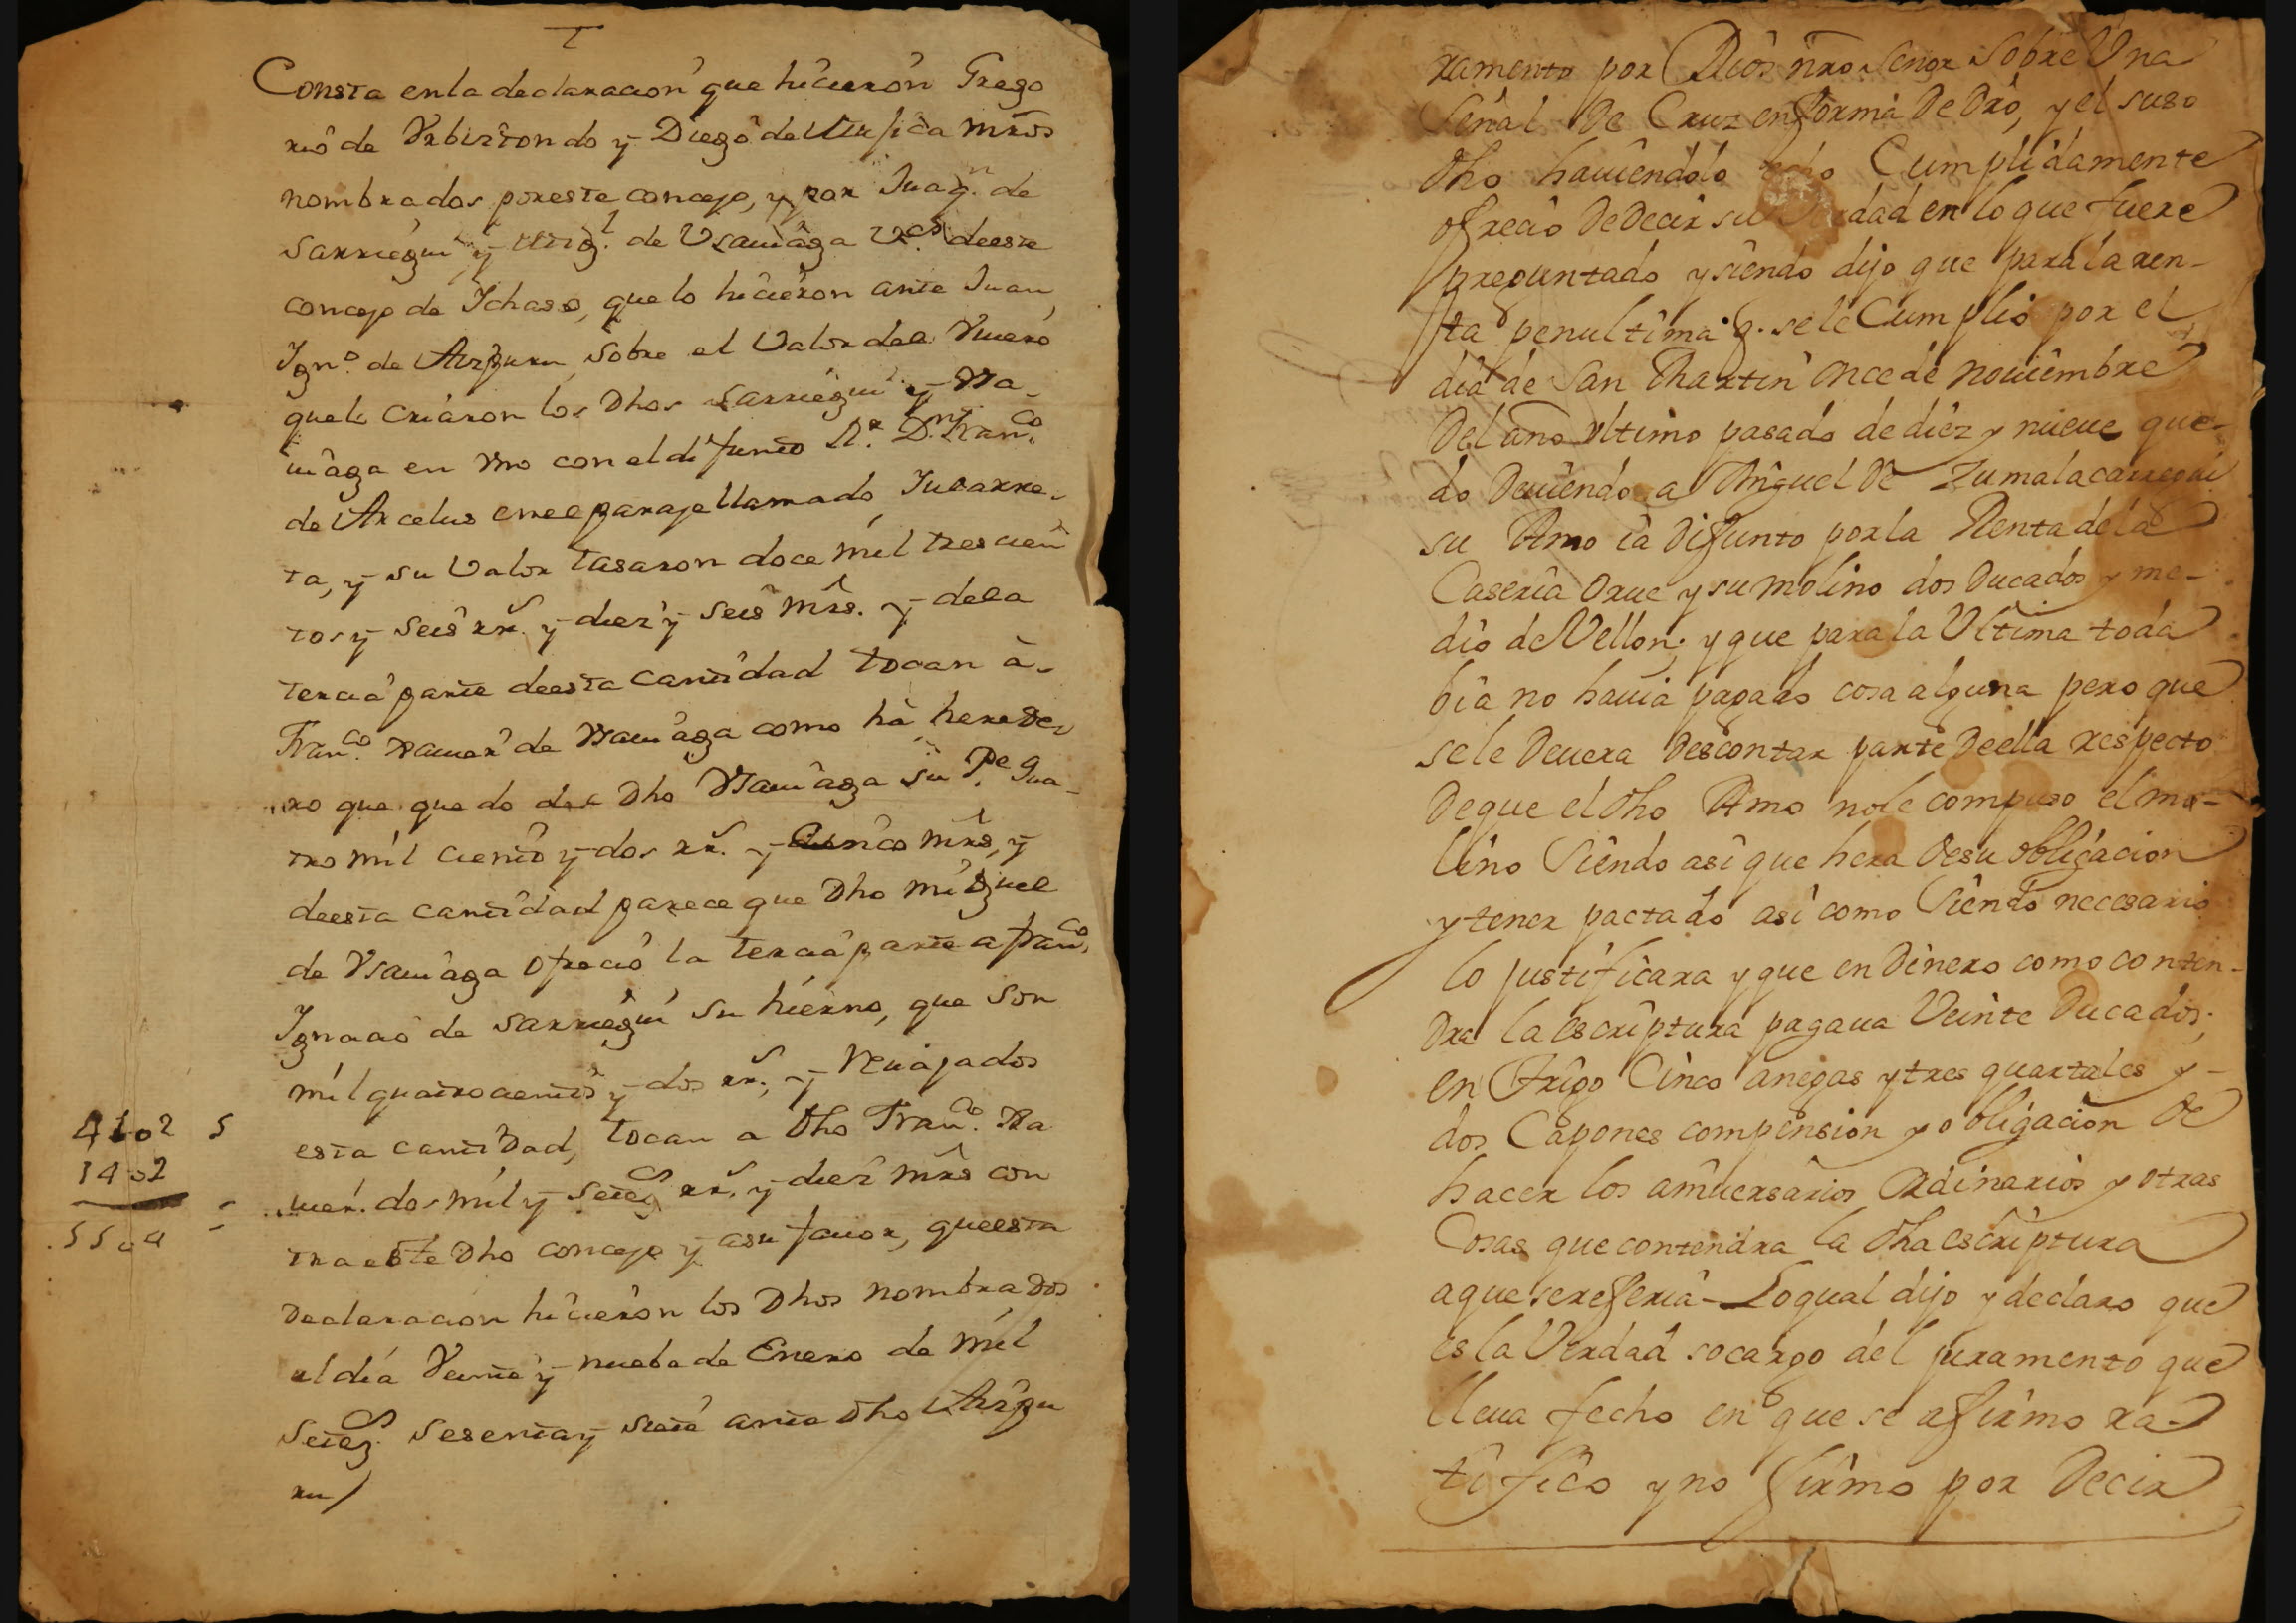 Consta enla declaracion que hicieron Grego
rio de Vrbiztondo y Diego de Mujica mrõs
nombrados poreste concejo, y por Juaqn. de
Sarriegui y Migl. de Vsauiaga Vcos. deeste
concejo de Ichaso, que lo hicieron ante Juan
Ign.o de Aizpuru sobre el Valor del Viuero
quele criaron los Dhos Sarriegui y Vsa-
uiaga en vno con el difunto Dr. Dn. Franco.
de Arcelus en el paraje llamado
ta, y su Valor tasaron doce mil trescien
tos y seis rr.s y diez y seis mrs. y dela
tercia parte deesta cantidad tocan à
Franco. Xauier de Vsauiaga como hà herede-
ro que quedo del Dho Vsauiaga su Pe. qua-
tro mil ciento y dos rr.s y cinco mrs, y
deesta cantidad parece que Dho Miguel
de Vsauiaga ofrecio la tercia parte a franco.
Ignacio de Sarriegui su hierno, que son
mil quatrocientos y dos rr.s, y Reuajados
esta cantidad, tocan a Dho Franco. Xa
uier. dos mil y setecs rr.s y diez mrs con
tra este Dho concejo y asu fauor, que esta
Declaracion hicieron los Dhos nombrados
el dia Veinte y nuebe de Enero de mil
setecs. sesenta y siete ante Dho Aizpu
ru/
4102 5
1402
5504
ramento por Dios nro Senor Sobre Vna
Señal De Cruz en forma De Dro, y el suso
Dho hauiendolo Cumplidamente
ofrecio De Decir su Verdad en lo que fuere
preguntado y siendo dijo que para la ren-
ta penultima q. se le Cumplio por el
dia de San Martin once de nouiembre
Del año Vltimo pasado de diez y nueue que-
do Deuiendo a Miguel De Zumalacarregui
su Amo ia Difunto por la Renta de la
Caseria Orue y su molino dos Ducados y me-
dio de Vellon; y que para la Vltima toda
bia no hauia pagado cosa alguna pero que
se le Deuera Descontar parte De ella respecto
De que el Dho Amo no le compuso el mo-
lino Siendo asi que hera De su obligacion
y tener pactado asi como Siendo necesario
lo justificara y que en Dinero como conten-
Dra la escriptura pagaua Veinte Ducados;
en trigo Cinco anegas y tres quartales y-
dos Capones com pension y obligacion De
hacer los aniuersarios Ordinarios y otras
Cosas que contendra la Dha escriptura
a que se referia - Lo qual dijo y declaro que
es la Verdad so cargo del juramento que
lleua fecho en que se afirmo ra-
tifico y no firmo por Decir